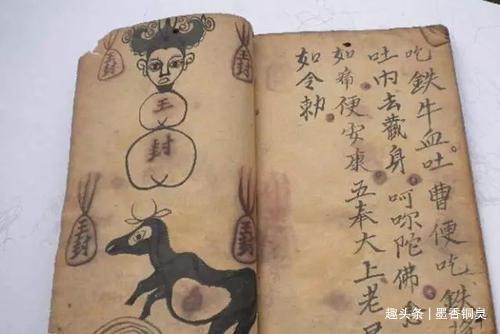 吃鉄牛血吐曹便吃鉄
吐内去截身呵陀佛
如希便安康五奉大上老
如令勅
王封
王
封
王封
王封
王封
趣头条 | 墨香铜臭